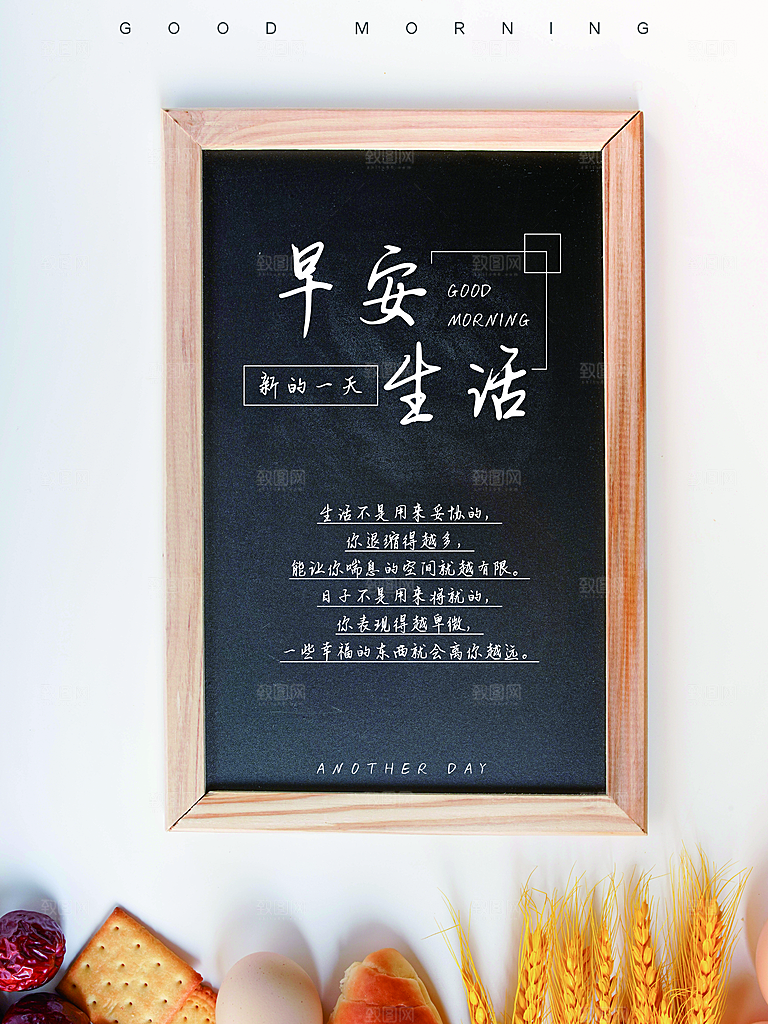 GOOD MORNING
早安
GOOD
MORNING
新的一天
生活
生活不是用来妥协的，
你退缩得越多，
能让你喘息的空间就越有限。
日子不是用来将就的，
你表现得越卑微，
一些幸福的东西就会离你越远。
ANOTHER DAY
致图网